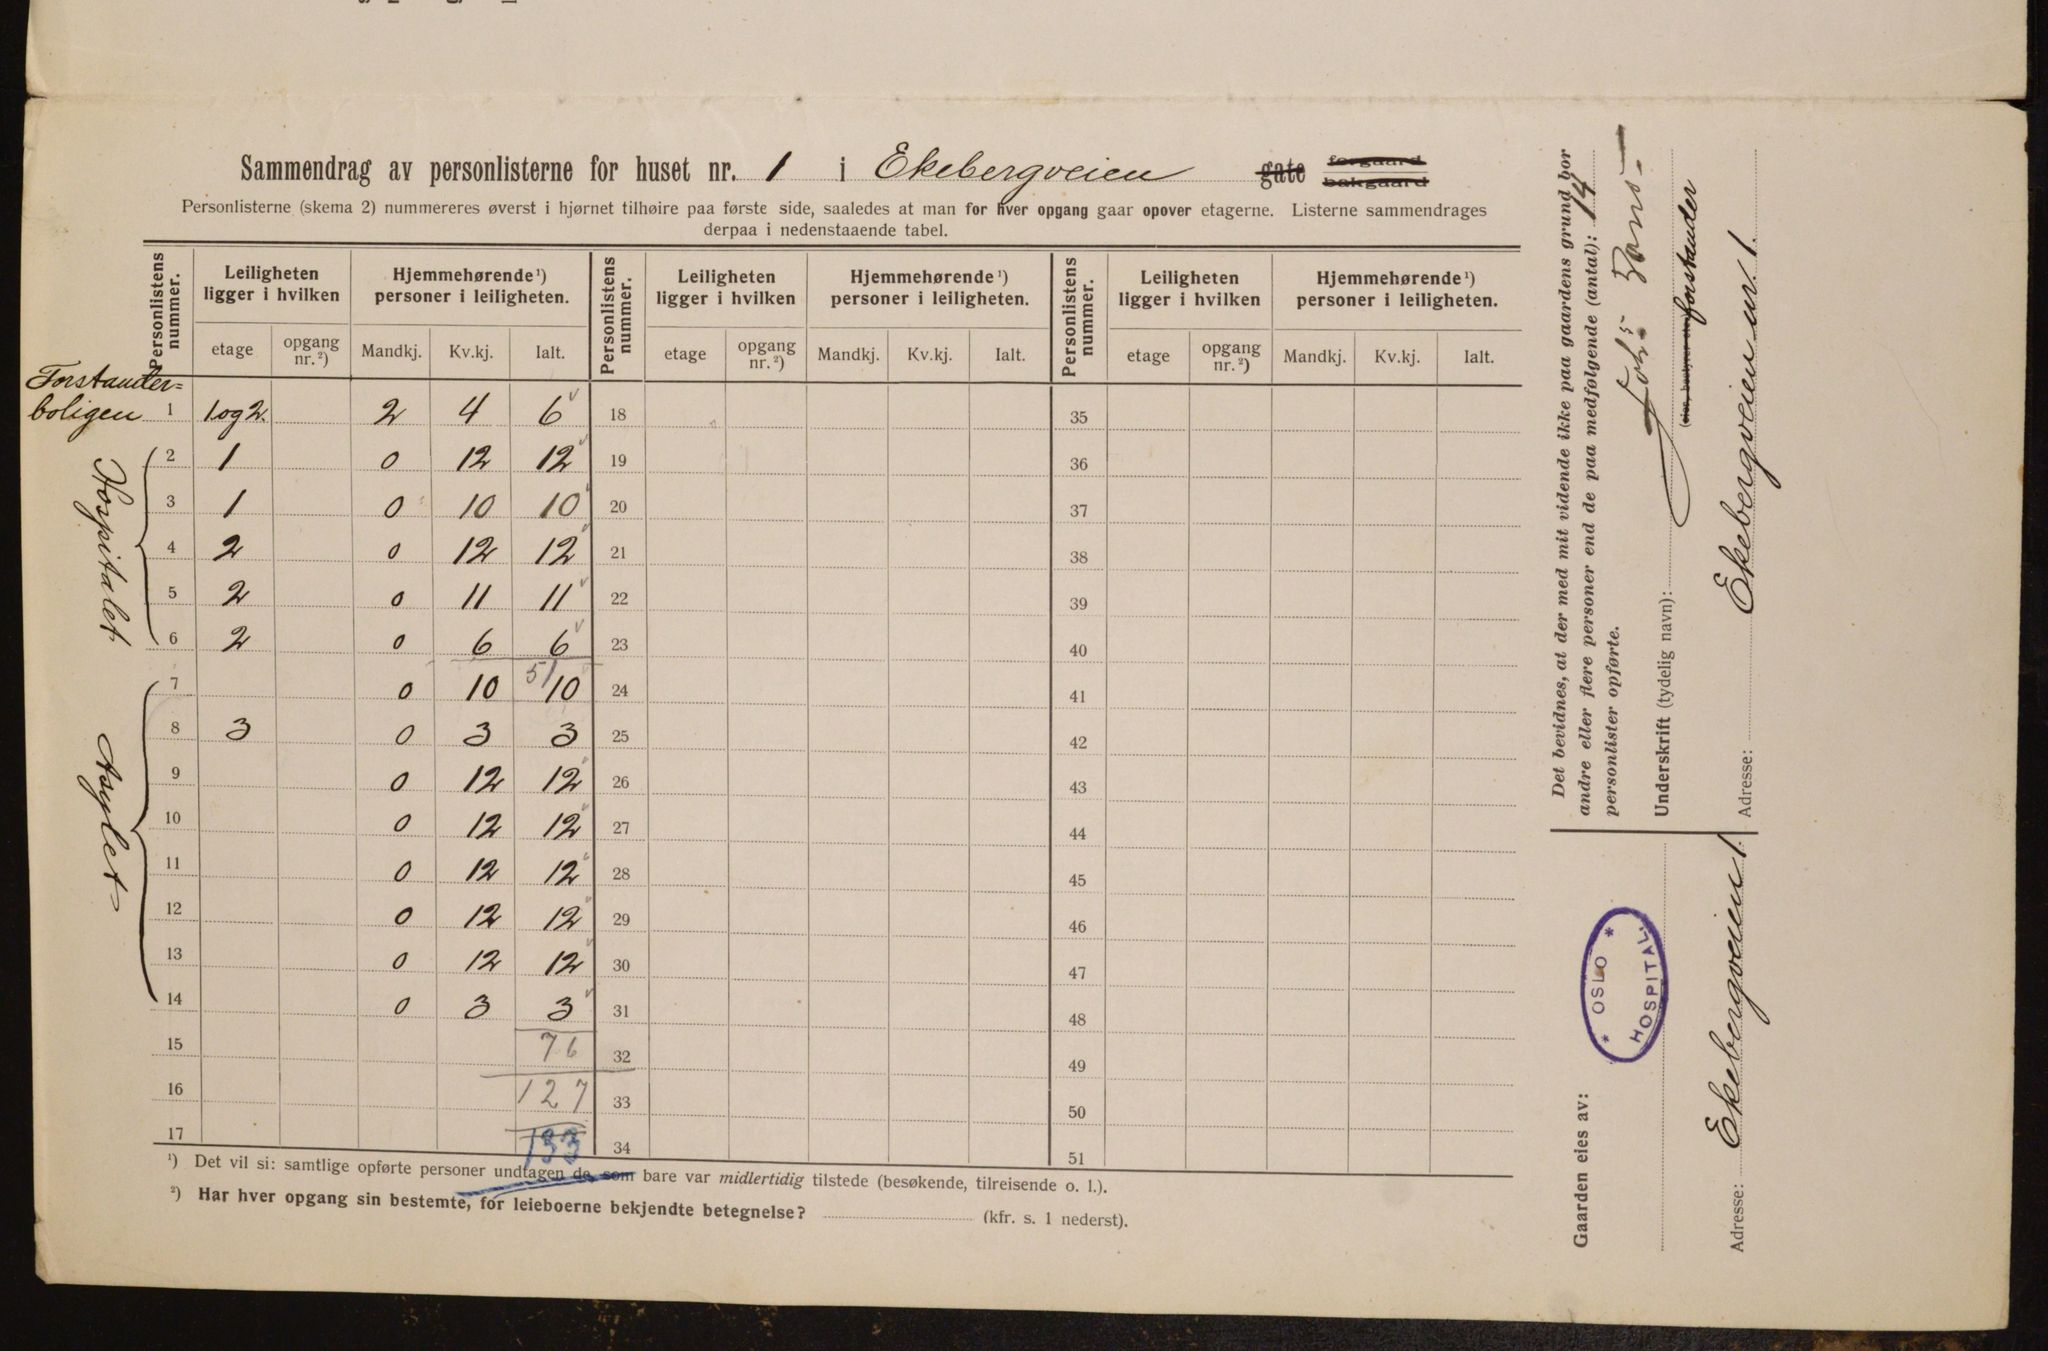 Sammendrag av personlisterne for huset nr. 1 i Ekebergveien gate forgaard bakgaard
Personlisterne (skema 2) nummereres øverst i hjørnet tilhøire paa første side, saaledes at man for hver opgang gaar opover etagerne. Listerne sammendrages
derpaa i nedenstaaende tabel.
Personlistens nummer. Leiligheten ligger i hvilken Hjemmehørende¹) personer i leiligheten. Personlistens nummer. Leiligheten ligger i hvilken Hjemmehørende¹) personer i leiligheten. Personlistens nummer. Leiligheten ligger i hvilken Hjemmehørende¹) personer i leiligheten.
etage opgang nr.²) Mandkj. Kv.kj. Ialt. etage opgang nr.²) Mandkj. Kv.kj. Ialt. etage opgang nr.²) Mandkj. Kv.kj. Ialt.
Forstander=
boligen 1 1 og 2. 2 4 6 18 35
Hospitalet
2 1 0 12 12 19 36
3 1 0 10 10 20 37
4 2 0 12 12 21 38
5 2 0 11 11 22 39
6 2 0 6 6 23 40
51
Asylet
7 0 10 10 24 41
8 3 0 3 3 25 42
9 0 12 12 26 43
10 0 12 12 27 44
11 0 12 12 28 45
12 0 12 12 29 46
13 0 12 12 30 47
14 0 3 3 31 48
15 76 32 49
16 127 33 50
17 133 34 51
¹) Det vil si: samtlige opførte personer undtagen de, som bare var midlertidig tilstede (besøkende, tilreisende o. l.).
²) Har hver opgang sin bestemte, for leieboerne bekjendte betegnelse? (kfr. s. 1 nederst).
Det bevidnes, at der med mit vidende ikke paa gaardens grund bor
andre eller flere personer end de paa medfølgende (antal): 14
personlister opførte.
Underskrift (tydelig navn):
forstander
Adresse: Ekebergveien nr. 1.
Gaarden eies av:
* OSLO * HOSPITAL
Adresse: Ekebergveien 1.